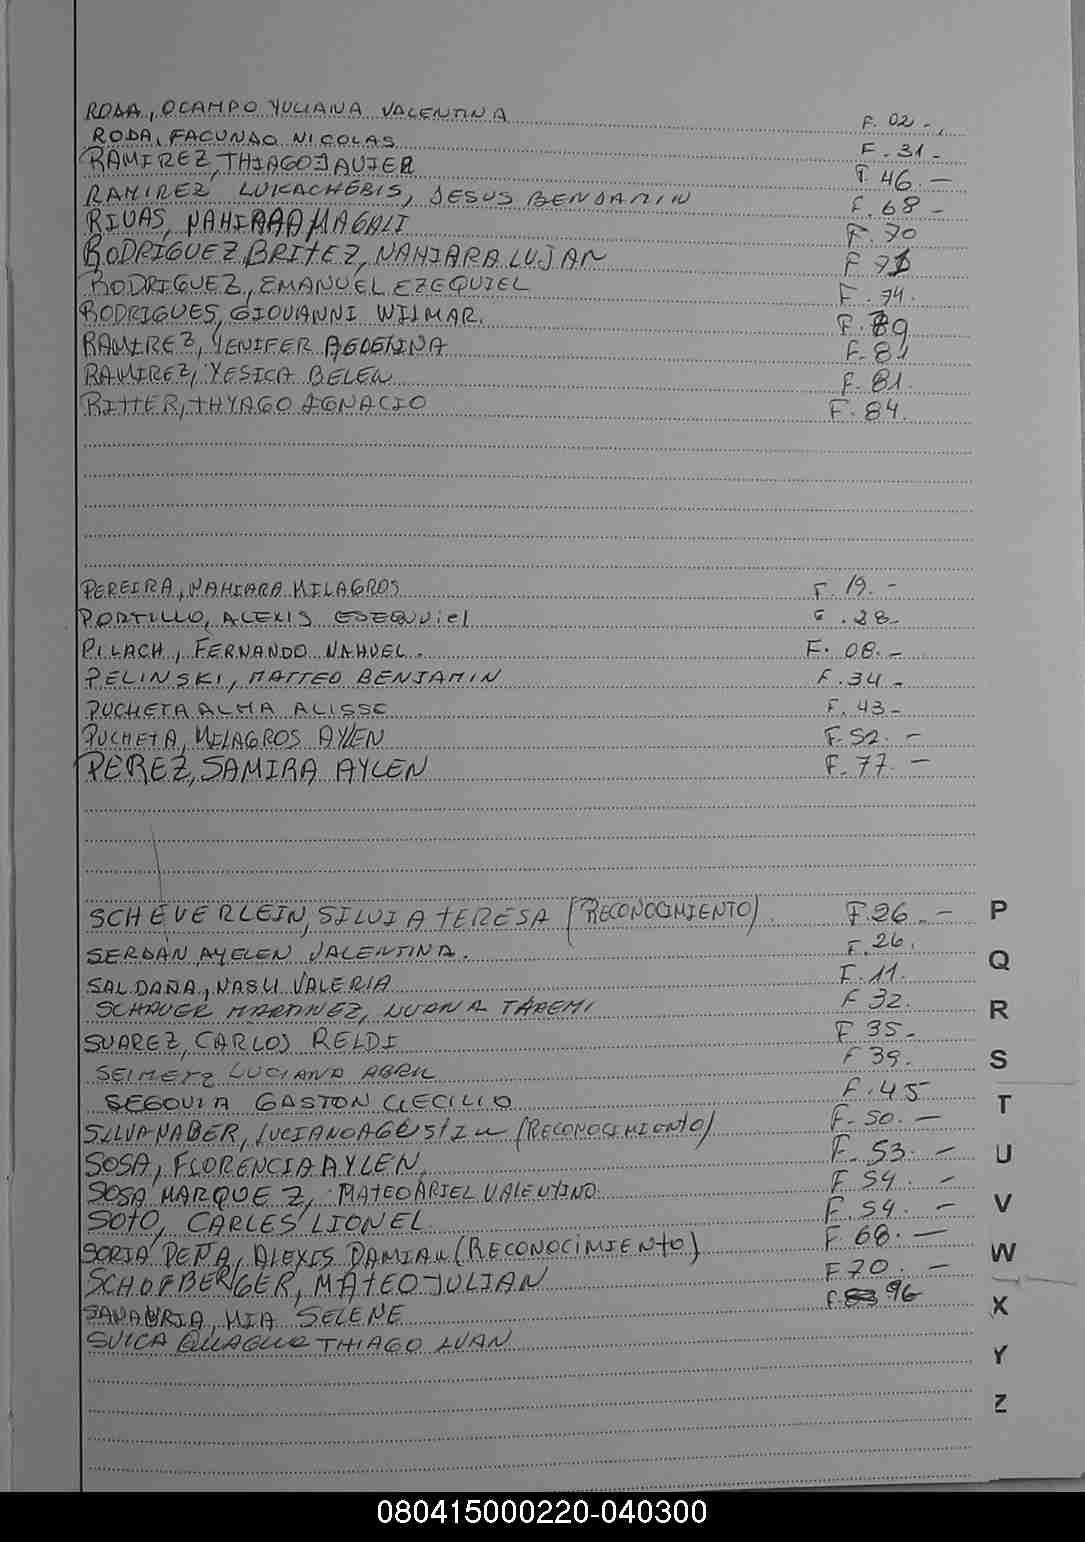 RODA, OCAMPO YULIANA VALENTINA F. 02 -
RODA, FACUNDO NICOLAS F. 31 -
RAMIREZ, THIAGO JAVIER F. 46. -
RAMIREZ LUKACHEBIS, JESUS BENJAMIN F. 68 -
RIVAS, NAHIARA MAGALI F. 70
RODRIGUEZ BRITEZ, NAHIARA LUJAN F 71
RODRIGUEZ, EMANUEL EZEQUIEL F. 74.
RODRIGUES, GIOVANNI WILMAR. F.
RAMIREZ, YENIFER AGOSTINA F. 81
RAMIREZ, YESICA BELEN F. 81.
RITTER, THYAGO IGNACIO F. 84.
PEREIRA, NAHIARA MILAGROS F. 19. -
PORTILLO, ALEXIS ESEQUiel F. 28-
PILACH, FERNANDO NAHUEL. F. 08. -
PELINSKI, MATTEO BENJAMIN F. 34 -
PUCHETA ALMA ALISSE F. 43 -
PUCHETA, MILAGROS AYLEN F. 52. -
PEREZ, SAMIRA AYLEN F. 77. -
SCHEVERLEIN, SILVIA TERESA (RECONOCIMIENTO). F. 26. - P
SERDAN AYELEN VALENTINA. F. 26. Q
SALDAÑA, NASLI VALERIA F. 11.
SCHAUER MARTINEZ, LUANA F 32. R
SUAREZ, CARLOS RELDI F 35.-
SEIMETZ LUCIANA ABRIL F 39. S
SEGOVIA GASTON CECILIO F. 45 T
SILVA NABER, LUCIANO AGUSTIN (RECONOCIMIENTO) F. 50. -
SOSA, FLORENCIA AYLEN. F. 53. - U
SOSA MARQUEZ, MATEO ARIEL VALENTINO. F 54. -
SOTO, CARLES LIONEL F. 54. - V
SORIA PEÑA, ALEXIS DAMIAN (RECONOCIMIENTO) F. 68. - W
SCHOFBERGER, MATEO JULIAN F 70. -
SANABRIA, MIA SELENE F. 96 X
SUICA THIAGO LUAN
Y
Z
080415000220-040300